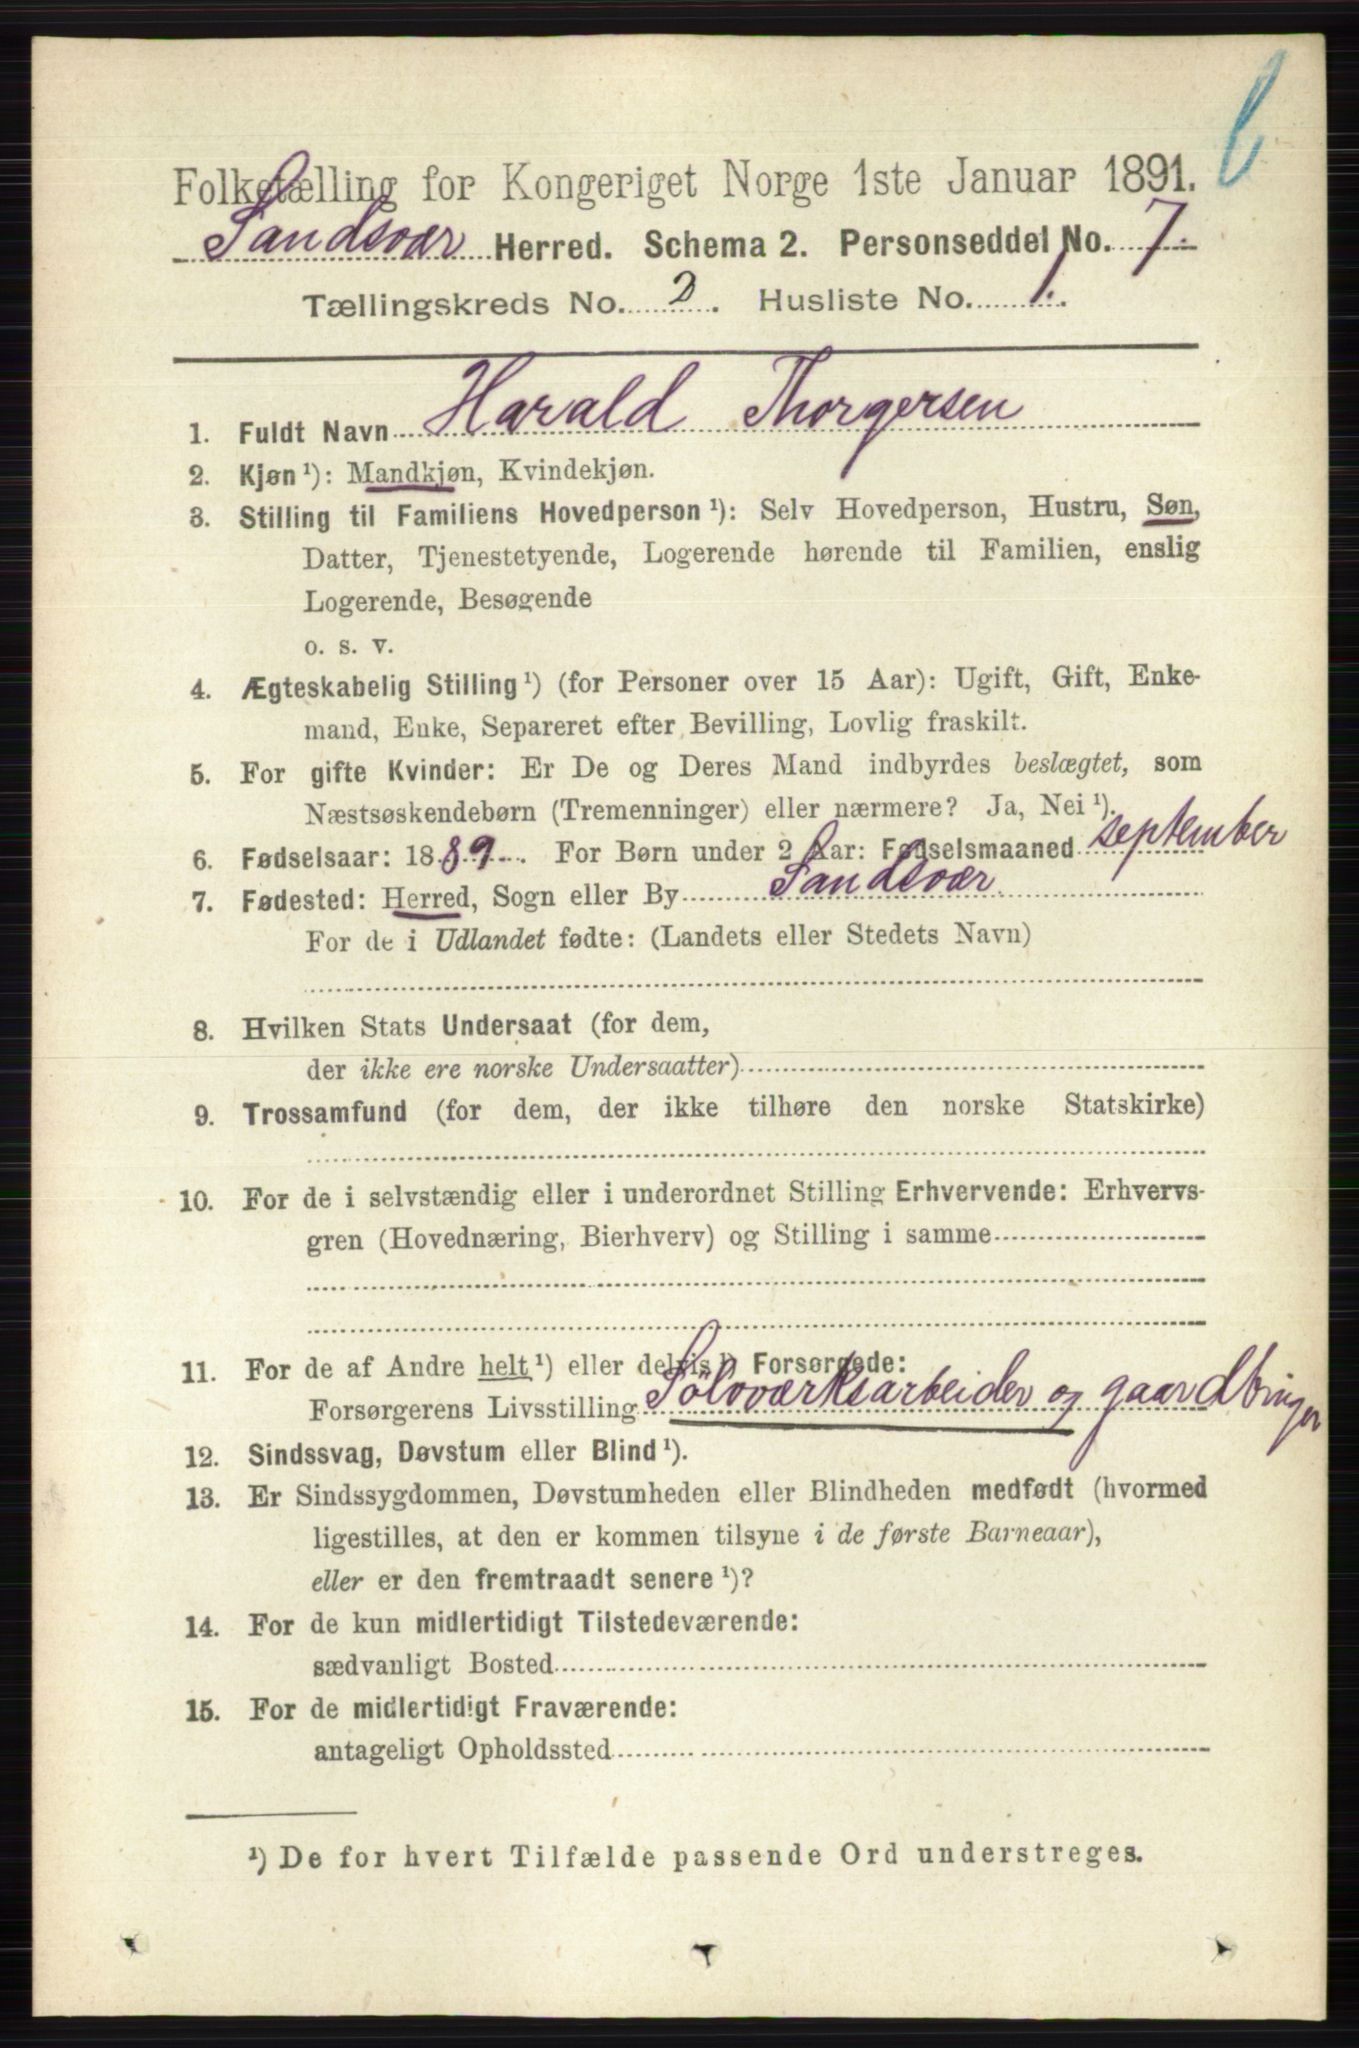 Folketælling for Kongeriget Norge 1ste Januar 1891.
Sandsvær Herred. Schema 2. Personseddel No. 7.
Tællingskreds No. 2. Husliste No. 1.
1. Fuldt Navn Harald Thorgersen
2. Kjøn ¹): Mandkjøn, Kvindekjøn.
3. Stilling til Familiens Hovedperson ¹): Selv Hovedperson, Hustru, Søn,
Datter, Tjenestetyende, Logerende hørende til Familien, enslig
Logerende, Besøgende
o. s. v.
4. Ægteskabelig Stilling ¹) (for Personer over 15 Aar): Ugift, Gift, Enke-
mand, Enke, Separeret efter Bevilling, Lovlig fraskilt.
5. For gifte Kvinder: Er De og Deres Mand indbyrdes beslægtet, som
Næstsøskendebørn (Tremenninger) eller nærmere? Ja, Nei ¹).
6. Fødselsaar: 1889. For Børn under 2 Aar: Fødselsmaaned september
7. Fødested: Herred, Sogn eller By Sandsvær
For de i Udlandet fødte: (Landets eller Stedets Navn)
8. Hvilken Stats Undersaat (for dem,
der ikke ere norske Undersaatter)
9. Trossamfund (for dem, der ikke tilhøre den norske Statskirke)
10. For de i selvstændig eller i underordnet Stilling Erhvervende: Erhvervs-
gren (Hovednæring, Bierhverv) og Stilling i samme
11. For de af Andre helt ¹) eller delvis ¹) Forsørgede:
Forsørgerens Livsstilling Sölvværksarbeider og gaardbruger
12. Sindssvag, Døvstum eller Blind ¹).
13. Er Sindssygdommen, Døvstumheden eller Blindheden medfødt (hvormed
ligestilles, at den er kommen tilsyne i de første Barneaar),
eller er den fremtraadt senere ¹)?
14. For de kun midlertidigt Tilstedeværende:
sædvanligt Bosted
15. For de midlertidigt Fraværende:
antageligt Opholdssted
¹) De for hvert Tilfælde passende Ord understreges.